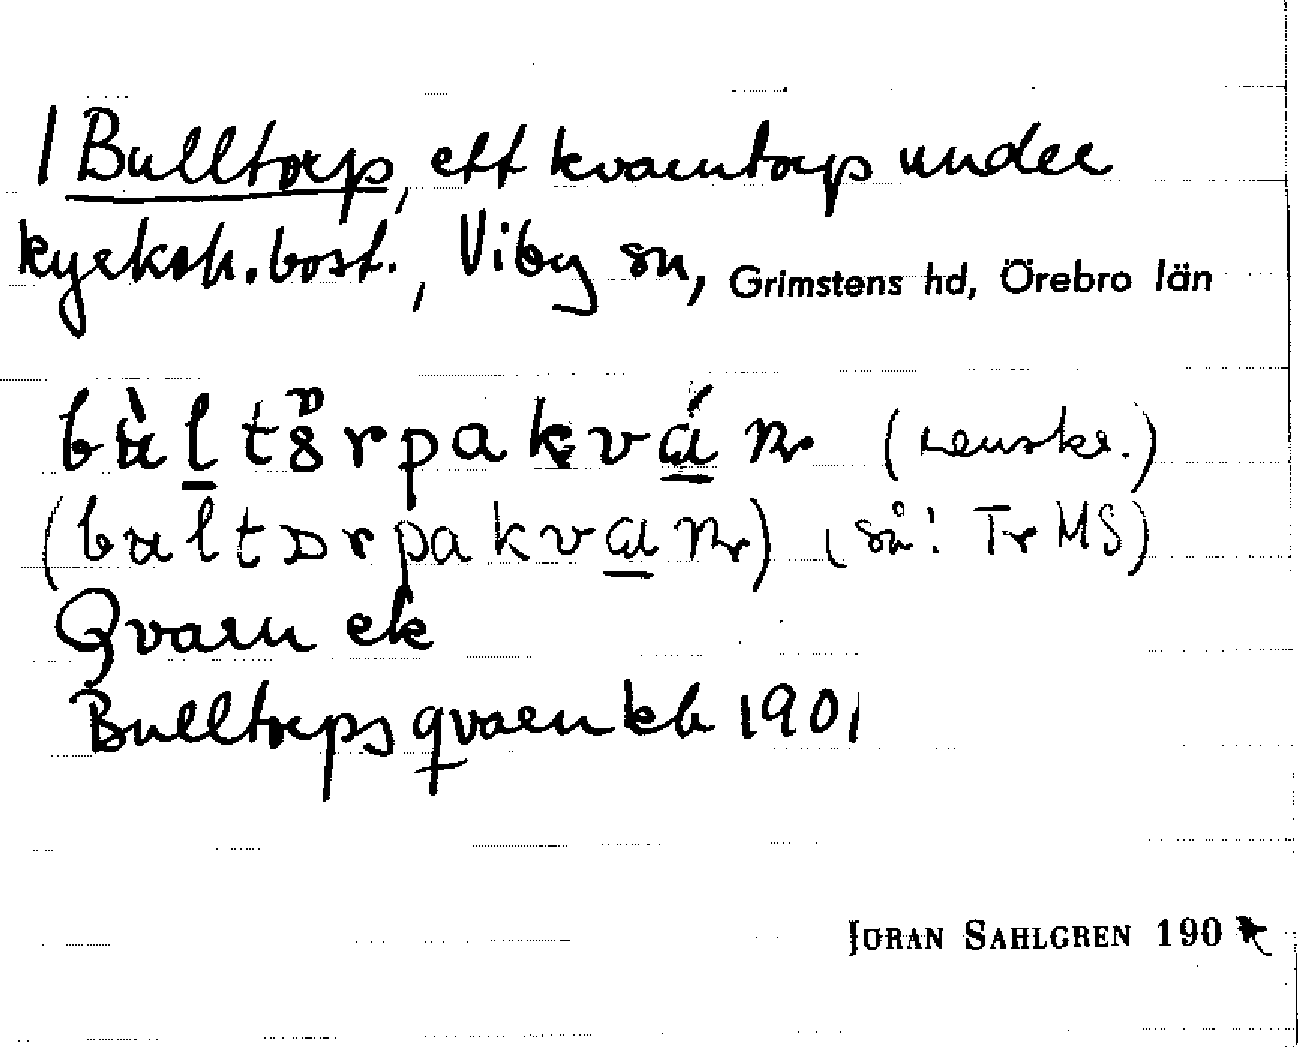 / Bulltorp, ett kvarntorp under
kyrkoh.bost., Viby sn, Grimstens hd, Örebro län
bùltörpakvá nr (renskr.)
(bultɔrpakvɑ nr) (så! Tr MS)
Qvarn ek
Bulltorps qvarn kb 1901
JÖRAN SAHLGREN 190